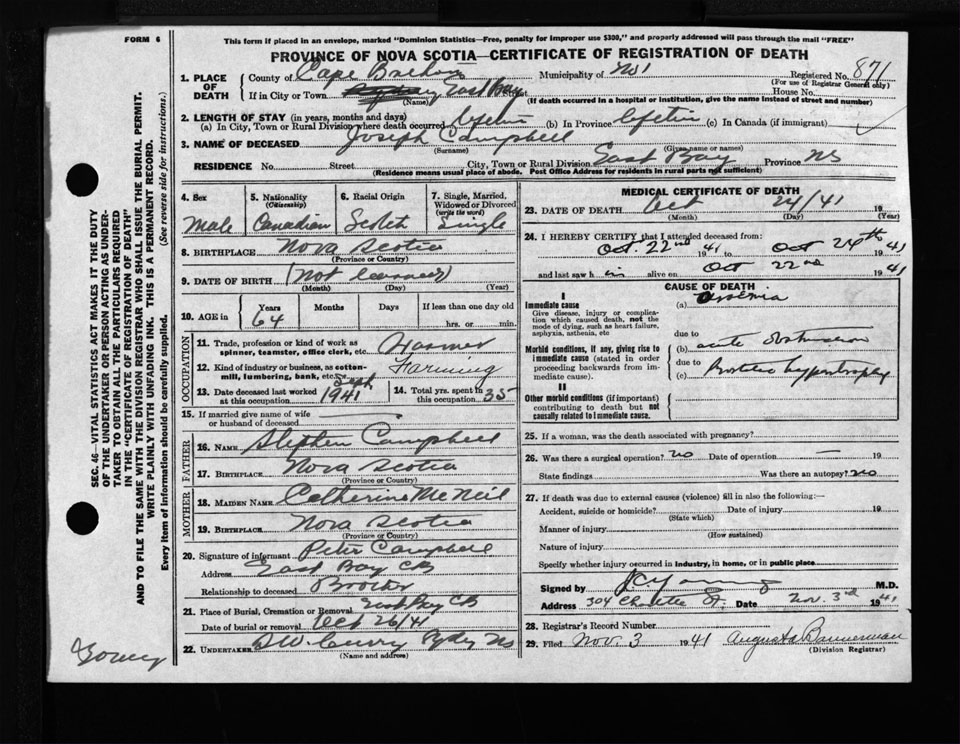 FORM 6
This form if placed in an envelope, marked "Dominion Statistics—Free, penalty for improper use $300," and properly addressed will pass through the mail "FREE"
PROVINCE OF NOVA SCOTIA—CERTIFICATE OF REGISTRATION OF DEATH
1. PLACE OF DEATH
County of Cape Breton Municipality of No 1 Registered No. 871
(For use of Registrar General only)
If in City or Town East Bay House No.
(Name)
(If death occurred in a hospital or institution, give the name instead of street and number)
2. LENGTH OF STAY (in years, months and days)
(a) In City, Town or Rural Division where death occurred Lifetime (b) In Province Lifetime (c) In Canada (if immigrant)
3. NAME OF DECEASED Joseph Campbell
(Surname) (Given name or names)
RESIDENCE No. Street City, Town or Rural Division East Bay Province NS
(Residence means usual place of abode. Post Office Address for residents in rural parts not sufficient)
4. Sex Male
5. Nationality (Citizenship) Canadian
6. Racial Origin Scotch
7. Single, Married, Widowed or Divorced (write the word) Single
8. BIRTHPLACE Nova Scotia
(Province or Country)
9. DATE OF BIRTH (Not learned)
(Month) (Day) (Year)
10. AGE in Years 64 Months Days If less than one day old hrs. or min.
OCCUPATION
11. Trade, profession or kind of work as spinner, teamster, office clerk, etc. Farmer
12. Kind of industry or business, as cotton-mill, lumbering, bank, etc. Farming
13. Date deceased last worked at this occupation Sept 1941
14. Total yrs. spent in this occupation 35
15. If married give name of wife or husband of deceased
FATHER
16. NAME Stephen Campbell
17. BIRTHPLACE Nova Scotia
(Province or Country)
MOTHER
18. MAIDEN NAME Catherine McNeil
19. BIRTHPLACE Nova Scotia
(Province or Country)
20. Signature of informant Peter Campbell
Address East Bay CB
Relationship to deceased Brother
21. Place of Burial, Cremation or Removal East Bay CB
Date of burial or removal Oct 26/41
22. UNDERTAKER Sydney NS
(Name and address)
MEDICAL CERTIFICATE OF DEATH
23. DATE OF DEATH Oct 24/41 19
(Month) (Day) (Year)
24. I HEREBY CERTIFY that I attended deceased from:
Oct. 22nd 1941 to Oct 24th 1941
and last saw him alive on Oct 22nd 1941
CAUSE OF DEATH
I
Immediate cause
Give disease, injury or complication which caused death, not the mode of dying, such as heart failure, asphyxia, asthenia, etc
(a) Uremia
due to
Morbid conditions, if any, giving rise to immediate cause (stated in order proceeding backwards from immediate cause).
(b) acute obstruction
due to
(c) Prostatic hypertrophy
II
Other morbid conditions (if important) contributing to death but not causally related to immediate cause.
25. If a woman, was the death associated with pregnancy?
26. Was there a surgical operation? no Date of operation —
State findings Was there an autopsy? no
27. If death was due to external causes (violence) fill in also the following:—
Accident, suicide or homicide? Date of injury 19
(State which)
Manner of injury
(How sustained)
Nature of injury
Specify whether injury occurred in industry, in home, or in public place
Signed by Young M.D.
Address 304 Charlotte St. Date Nov. 3rd 1941
28. Registrar's Record Number
29. Filed Nov. 3 1941 Augusta Bannerman
(Division Registrar)
SEC. 46—VITAL STATISTICS ACT MAKES IT THE DUTY
OF THE UNDERTAKER OR PERSON ACTING AS UNDER-
TAKER TO OBTAIN ALL THE PARTICULARS REQUIRED
IN THE "CERTIFICATE OF REGISTRATION OF DEATH"
AND TO FILE THE SAME WITH THE DIVISION REGISTRAR WHO SHALL ISSUE THE BURIAL PERMIT.
WRITE PLAINLY WITH UNFADING INK. THIS IS A PERMANENT RECORD.
Every item of information should be carefully supplied. (See reverse side for instructions.)